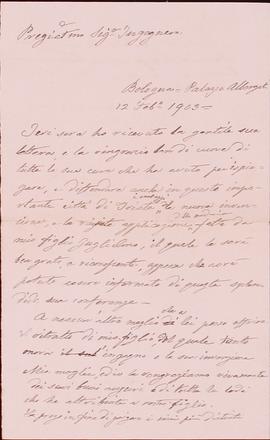 Pregiat.mo Sig.r Ingegnere
Bologna = Palazzo Albergati
12 Feb.o 1903 =
Ieri sera ho ricevuto la gentile sua
lettera, e la ringrazio ben di cuore di
tutte le sue cure che ha avuto per ispie
gare, e diffondere anche in questa impor
tante città di la nuova inven
zione, e la applicazione, fatta da
mio figlio Guglielmo, il quale le sarà
ben grato, e riconoscente, appena che avrà
potuto essere informato di quella splen
dida sua conferenza. —
A nessun'altro meglio che a lei posso offrire
il ritratto di mio figlio, del quale tanto
onora ingegno e la sua invenzione
Mia moglie, ed io la ringraziamo vivamente
di suoi buoni auguri e di tutte le lodi
che ha attribuito a nostro figlio.
La prego in fine di gradire i miei più distinti